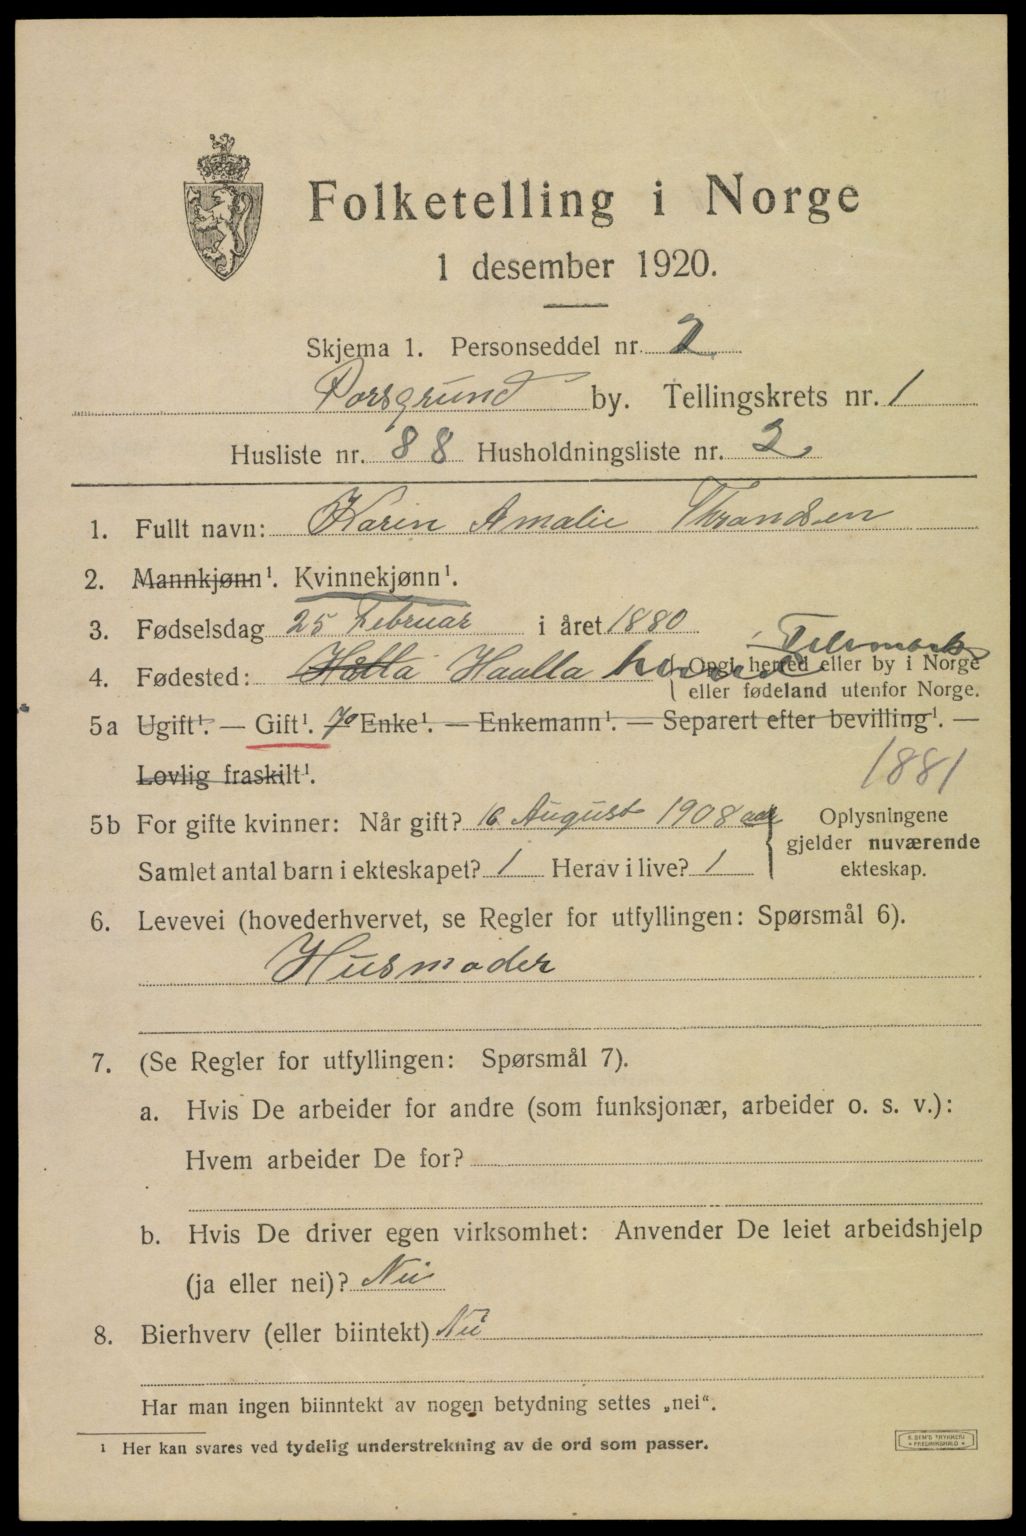 Folketelling i Norge
1 desember 1920.
Skjema 1. Personseddel nr. 2
Porsgrund by. Tellingskrets nr. 1
Husliste nr. 88 Husholdningsliste nr. 2
1. Fullt navn: Karin Amalie Throndsen
2. Mannkjønn¹. Kvinnekjønn¹.
3. Fødselsdag 25 Februar i året 1880
Telemark
4. Fødested: Holla Haalla herred (Opgi herred eller by i Norge
eller fødeland utenfor Norge.
5a Ugift¹. — Gift¹. — Enke¹. — Enkemann¹. — Separert efter bevilling¹. —
Lovlig fraskilt¹. 1881
5b For gifte kvinner: Når gift? 16 August 1908 Oplysningene
gjelder nuværende
Samlet antal barn i ekteskapet? 1 Herav i live? 1 ekteskap.
6. Levevei (hovederhvervet, se Regler for utfyllingen: Spørsmål 6).
Husmoder
7. (Se Regler for utfyllingen: Spørsmål 7).
a. Hvis De arbeider for andre (som funksjonær, arbeider o. s. v.):
Hvem arbeider De for?
b. Hvis De driver egen virksomhet: Anvender De leiet arbeidshjelp
(ja eller nei)? Nei
8. Bierhverv (eller biintekt) Nei
Har man ingen biinntekt av nogen betydning settes „nei“.
¹ Her kan svares ved tydelig understrekning av de ord som passer.